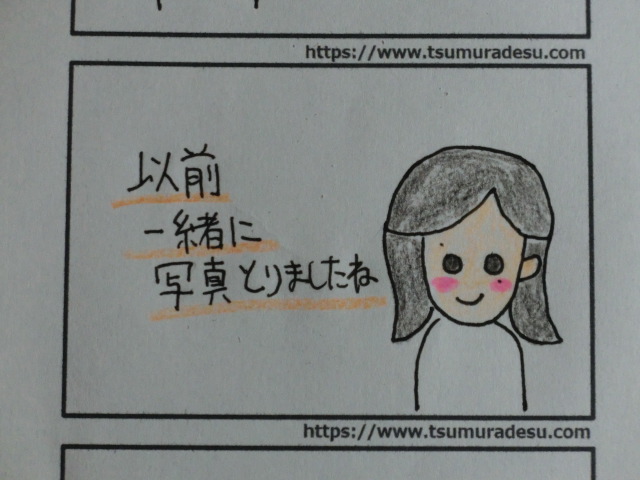 https://www.tsumuradesu.com
以前
一緒に
写真とりましたね
https://www.tsumuradesu.com